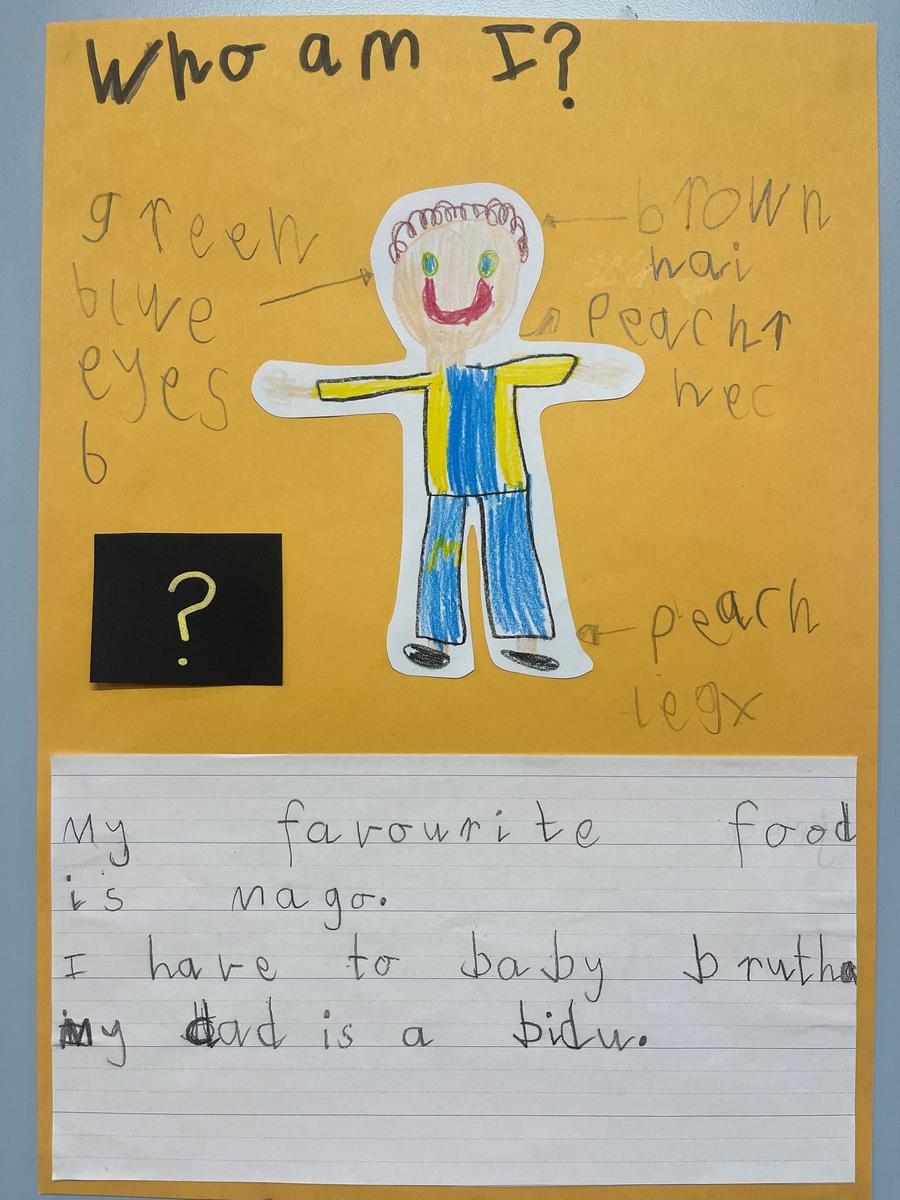 Who am I?
green
blue
eyes
b
brown
hai
peachr
nec
?
M
peach
legx
My favourite food
is mago.
I have to baby brutha
my dad is a bidu.